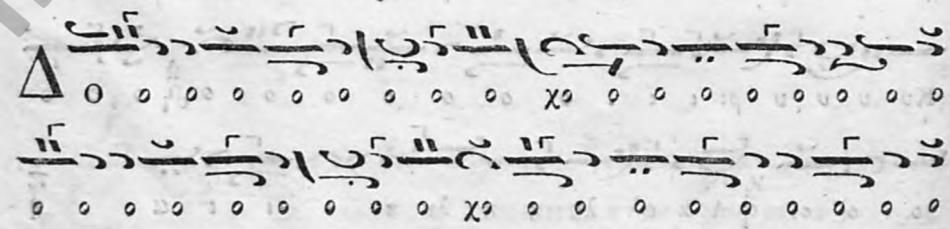 Δο ο ο ο ο ο ο ο ο χο ο ο ο ο ο ο ο ο
ο ο ο ο ο ο ο ο ο χο ο ο ο ο ο ο ο ο ο